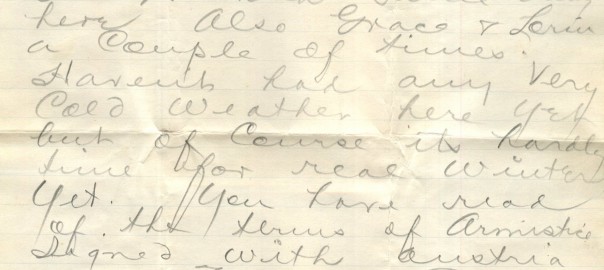 here Also Grace & Lorin
a Couple of times.
Havent had any Very
Cold Weather here yet
but of Course its hardly
time for real Winter
yet. You have read
of the terms of Armistice
Signed with Austria